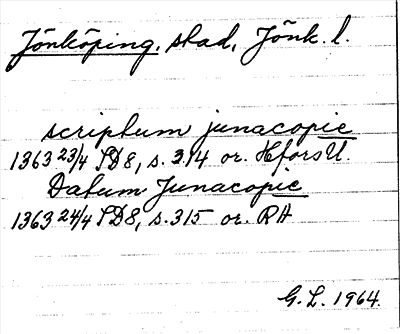 Jönköping, stad, Jönk. l.
scriptum junacopie
1363 23/4 SD8, s. 314 or. Hfors U.
Datum Junacopie
1363 24/4 SD8, s. 315 or. RA
G. L. 1964.